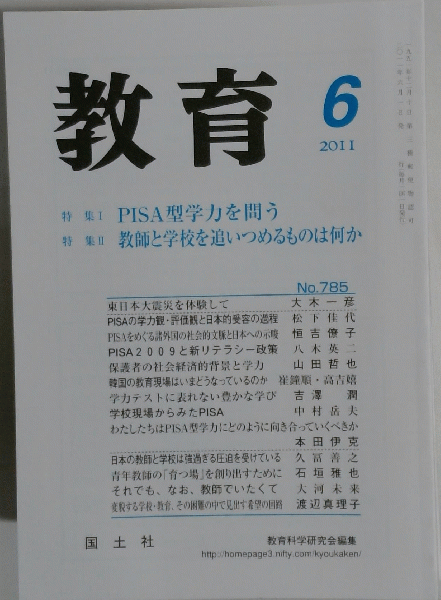 教育
6
2011
特集I PISA型学力を問う
特集II 教師と学校を追いつめるものは何か
No.785
東日本大震災を体験して 大木一彦
PISAの学力観・評価観と日本的受容の過程 松下佳代
PISAをめぐる諸外国の社会的文脈と日本への示唆 恒吉僚子
PISA2009と新リテラシー政策 八木英二
保護者の社会経済的背景と学力 山田哲也
韓国の教育現場はいまどうなっているのか 崔鍾順・高吉嬉
学力テストに表れない豊かな学び 吉澤潤
学校現場からみたPISA 中村岳夫
わたしたちはPISA型学力にどのように向き合っていくべきか
本田伊克
日本の教師と学校は強過ぎる圧迫を受けている 久冨善之
青年教師の「育つ場」を創り出すために 石垣雅也
それでも、なお、教師でいたくて 大河未来
変貌する学校・教育、その困難の中で見出す希望の回路 渡辺真理子
国土社
教育科学研究会編集
http://homepage3.nifty.com/kyoukaken/